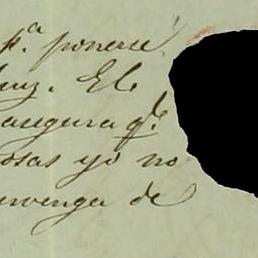 p.ª ponerse
luz. El
asegura q.e
cosas yo no
venga de